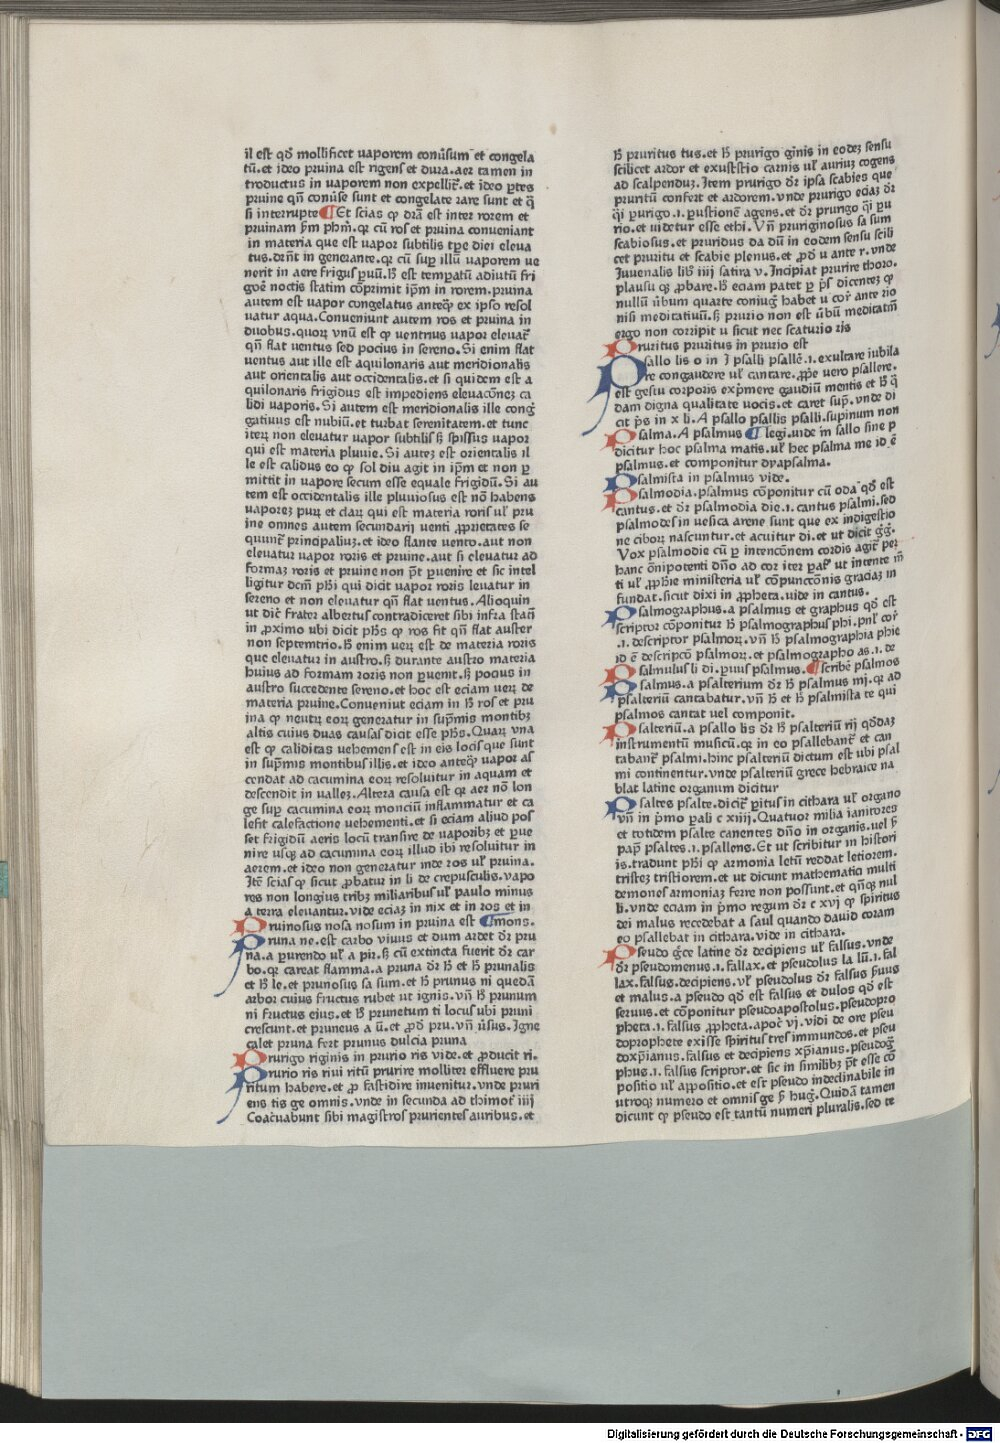 il est qđ mollificet uaporem conũsum et congela
tũ.et ideo pruina est rigens et dura.aer tamen in
troductus in uaporem non expellit᷑.et ideo ꝑtes
pruine qñ conũse sunt et congelate rare sunt et q̃
si interrupte ¶ Et scias ꝙ dr̃a est inter rorem et
pruinam ẜm phm̃.qꝛ cũ ros et pruina conueniant
in materia que est uapor subtilis tp̃e diei eleua
tus.drñt in generante.qꝛ cũ suꝑ illũ uaporem ue
nerit in aere frigus ꝑuũ.ħ est temꝑatũ adiutũ fri
goꝛe noctis statim cõprimit ip̃m in rorem.pruina
autem est uapor congelatus anteqꝫ ex ipso resol
uatur aqua.Conueniunt autem ros et pruina in
duobus.quoꝝ vnũ est ꝙ uentrius uapor eleuat᷑
qñ flat uentus sed pocius in sereno.Si enim flat
uentus aut ille est aquilonaris aut meridionalis
aut orientalis aut occidentalis.et si quidem est a
quilonaris frigidus est impediens eleuacõneꝫ ca
lidi uaporis.Si autem est meridionalis ille cong̃
gatiuus est nubiũ.et turbat serenitatem.et tunc
iteꝝ non eleuatur uapor subtilis ꝫ spissus uapor
qui est materia pluuie.Si auteꝫ est orientalis il
le est calidus eo ꝙ sol diu agit in ip̃m et non ꝑ
mittit in uapore secum esse equale frigidũ.Si au
tem est occidentalis ille pluuiosus est nõ habens
uaporeꝫ puꝝ et claꝝ qui est materia roris uł pru
ine omnes autem secundarij uenti ꝓprietates se
quunt᷑ principaliuꝫ.et ideo flante uento.aut non
eleuatur uapor roris et pruine.aut si eleuatur ad
formaꝫ roris et pruine non põt ꝑuenire et sic intel
ligitur dcm̃ phi qui dicit uapor roris leuatur in
sereno et non eleuatur qñ flat uentus.Alioquin
ut dic̃ frater albertus contradiceret sibi infra statĩ
in ꝓximo ubi dicit phs ꝙ ros fit qñ flat auster
non septemtrio.ħ enim ueꝝ est de materia roris
que eleuatur in austro.ꝫ durante austro materia
huius ad formam roris non ꝑuenit.ꝫ pocius in
austro succedente sereno.et hoc est eciam ueꝝ de
materia pruine.Conueniut eciam in ħ ros et pru
ina ꝙ neutꝝ eoꝝ generatur in sup̃mis montibꝫ
altis cuius duas causas dicit esse phs.Quaꝝ vna
est ꝙ caliditas uehemens est in eis locis que sunt
in sup̃mis montibus illis.et ideo anteqꝫ uapor as
cendat ad cacumina eoꝝ resoluitur in aquam et
descendit in ualleꝫ.Altera causa est qꝛ aer nõ lon
ge suꝑ cacumina eoꝝ monciũ inflammatur et ca
lefit calefactione uehementi.et si eciam aliud pos
set frigidũ aeris locũ transire de uaporibꝫ et ꝑue
nire usqꝫ ad cacumina eoꝝ illud ibi resoluitur in
aerem.et ideo non generatur inde ros uł pruina.
Itẽ scias ꝙ sicut ꝓbatur in li de crepusculis.uapo
res non longius tribꝫ miliaribus uł paulo minus
a terra eleuantur.vide eciaꝫ in nix et in ros et in
Pruinosus nosa nosum in pruina est ¶mons.
Pruna ne.est carbo viuus et dum ardet dr̃ pru
na.a ꝑurendo uł a pir.ꝫ cũ extincta fuerit dr̃ car
bo.qꝛ careat flamma.a pruna dr̃ ħ et ħ prunalis
et ħ le.et prunosus sa sum.et ħ prunus ni quedã
arbor cuius fructus rubet ut ignis.vñ ħ prunum
ni fructus eius.et ħ prunetum ti locus ubi pruni
crescunt.et pruneus a ũ.et ꝓđ pru.vñ ũsus.Igne
calet pruna fert prunus dulcia pruna
Prurigo riginis in prurio ris vide.et ꝓducit ri.
Prurio ris riui ritũ prurire molliter effluere pru
ritum habere.et ꝓ fastidire inuenitur.vnde pruri
ens tis ge omnis.vnde in secunda ad thimot᷑ iiij
Coac̃uabunt sibi magistros prurientes auribus.et
ħ pruritus tus.et ħ prurigo gĩnis in eodeꝫ sensu
scilicet ardor et exustio carnis uł auriuꝫ cogens
ad scalpenduꝫ.Item prurigo dr̃ ipsa scabies que
pruritũ confert et ardorem.vnde prurigo eciaꝫ dr̃
q̃i ꝑurigo.ı.ꝑustionẽ agens.et dr̃ prurigo q̃i pu
rio.et uidetur esse ethi.Vñ pruriginosus sa sum
scabiosus.et pruridus da dũ in eodem sensu scili
cet pruritu et scabie plenus.et ꝓđ u ante r.vnde
Juuenalis lib iiij satira v.Incipiat prurire thoro.
plausu qꝫ ꝓbare.ħ eciam patet ꝑ p̃s dicenteꝫ ꝙ
nullũ ũbum quarte coniug᷑ habet u cor̃ ante rio
nisi meditatiuũ.ꝫ prurio non est ũbũ meditatiũ
ergo non corripit u sicut nec scaturio ris
Pruritus pruritus in prurio est
Psallo lis o in J psalli psallẽ.ı.exultare iubila
re congaudere uł cantare.ꝓp̃e uero psallere.
est gestu corporis exp̃mere gaudiũ mentis et ħ q̃
dam digna qualitate uocis.et caret sup̃.vnde di
cit p̃s in x li.A psallo psallis psalli.supinum non
Psalma.A psalmus ¶ legi.uide in sallo sine p
dicitur hoc psalma matis.uł hec psalma me id ẽ
psalmus.et componitur dyapsalma.
Psalmista in psalmus vide.
Psalmodia.psalmus cõponitur cũ oda qđ est
cantus.et dr̃ psalmodia die.ı.cantus psalmi.sed
psalmodes in uesica arene sunt que ex indigestio
ne ciboꝝ nascuntur.et acuitur di.et ut dicit g̃g̃.
Vox psalmodie cũ ꝑ intencõnem cordis agit᷑ per
hanc õnipotenti dño ad cor iter ꝑat᷑ ut intente m̃
ti uł ꝓphie ministeria uł cõpuncconis graciaꝫ in
fundat.sicut dixi in ꝓpheta.uide in cantus.
Psalmographus.a psalmus et graphus qđ est
scriptor cõponitur ħ psalmographus phi.pñł cor̃
.ı.descriptor psalmoꝝ.vñ ħ psalmographia phie
id ẽ descripcõ psalmoꝝ.et psalmographo as.ı.de
Psalmulus li di.ꝑuus psalmus. ¶ scribẽ psalmos
Psalmus.a psalterium dr̃ ħ psalmus mj.qꝛ ad
psalteriũ cantabatur.vñ ħ et ħ psalmista te qui
psalmos cantat uel componit.
Psalteriũ.a psallo lis dr̃ ħ psalteriũ rij qđdaꝫ
instrumentũ musicũ.qꝛ in eo psallebant᷑ et can
tabant᷑ psalmi.hinc psalteriũ dictum est ubi psal
mi continentur.vnde psalteriũ grece hebraice na
blat latine organum dicitur
Psaltes psalte.dicit᷑ ꝑitus in cithara uł organo
vñ in p̃mo ꝑali c xiiij.Quatuor milia ianitores
et totidem psalte canentes dño in organis.uel ẜ
pap̃ psaltes.ı.psallens.Et ut scribitur in histori
is.tradunt phi ꝙ armonia letũ reddat letiorem.
tristeꝫ tristiorem.et ut dicunt mathematici multi
demones armoniaꝫ ferre non possunt.et qñqꝫ nul
li.vnde eciam in p̃mo regum dr̃ c xvj ꝙ spiritus
dei malus recedebat a saul quando dauid coram
eo psallebat in cithara.vide in cithara.
Pseudo g̃ce latine dr̃ decipiens uł falsus.vnde
dr̃ pseudomenus.ı.fallax.et pseudolus la lũ.ı.fal
lax.falsus.decipiens.vł pseudolus dr̃ falsus ẜuus
et malus.a pseudo qđ est falsus et dulos qđ est
seruus.et cõponitur pseudoapostolus.pseudopro
pheta.ı.falsus ꝓpheta.apoc᷑ vj.vidi de ore pseu
doprophete exisse spiritus tres immundos.et pseu
doxp̃ianus.falsus et decipiens xp̃ianus.pseudog᷑
phus.ı.falsus scriptor.et sic in similibꝫ põt esse cõ
positio uł appositio.et est pseudo indeclinabile in
utroqꝫ numero et omnis ge ẜ hug᷑.Quidã tamen
dicunt ꝙ pseudo est tantũ numeri pluralis.sed te
Digitalisierung gefördert durch die Deutsche Forschungsgemeinschaft - DFG